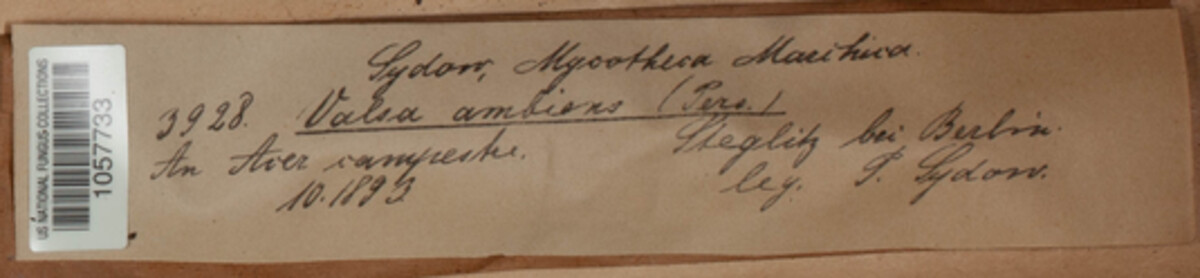 US NATIONAL FUNGUS COLLECTIONS
1057733
Sydow, Mycotheca Marchica.
3928. Valsa ambiens (Pers.)
An Acer campestre. Steglitz bei Berlin.
10.1893. leg. P. Sydow.